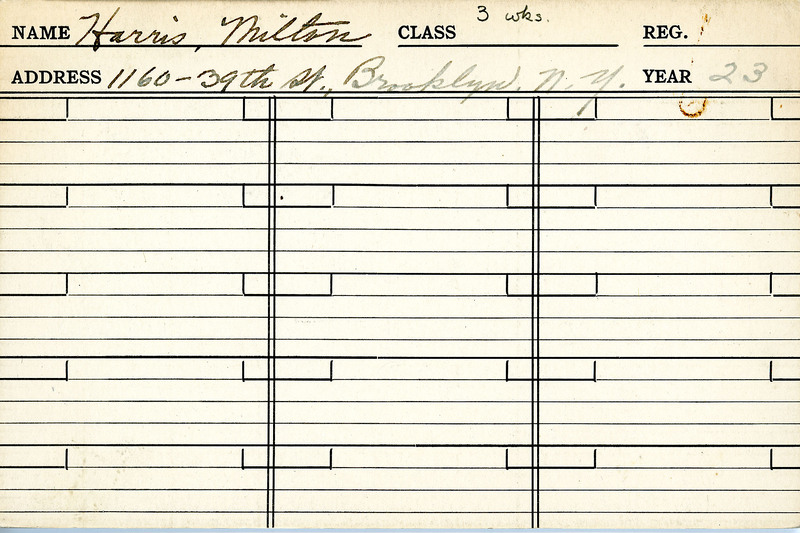 NAME Harris, Milton CLASS 3 wks. REG.
ADDRESS 1160-39th St., Brooklyn, N.Y. YEAR 23